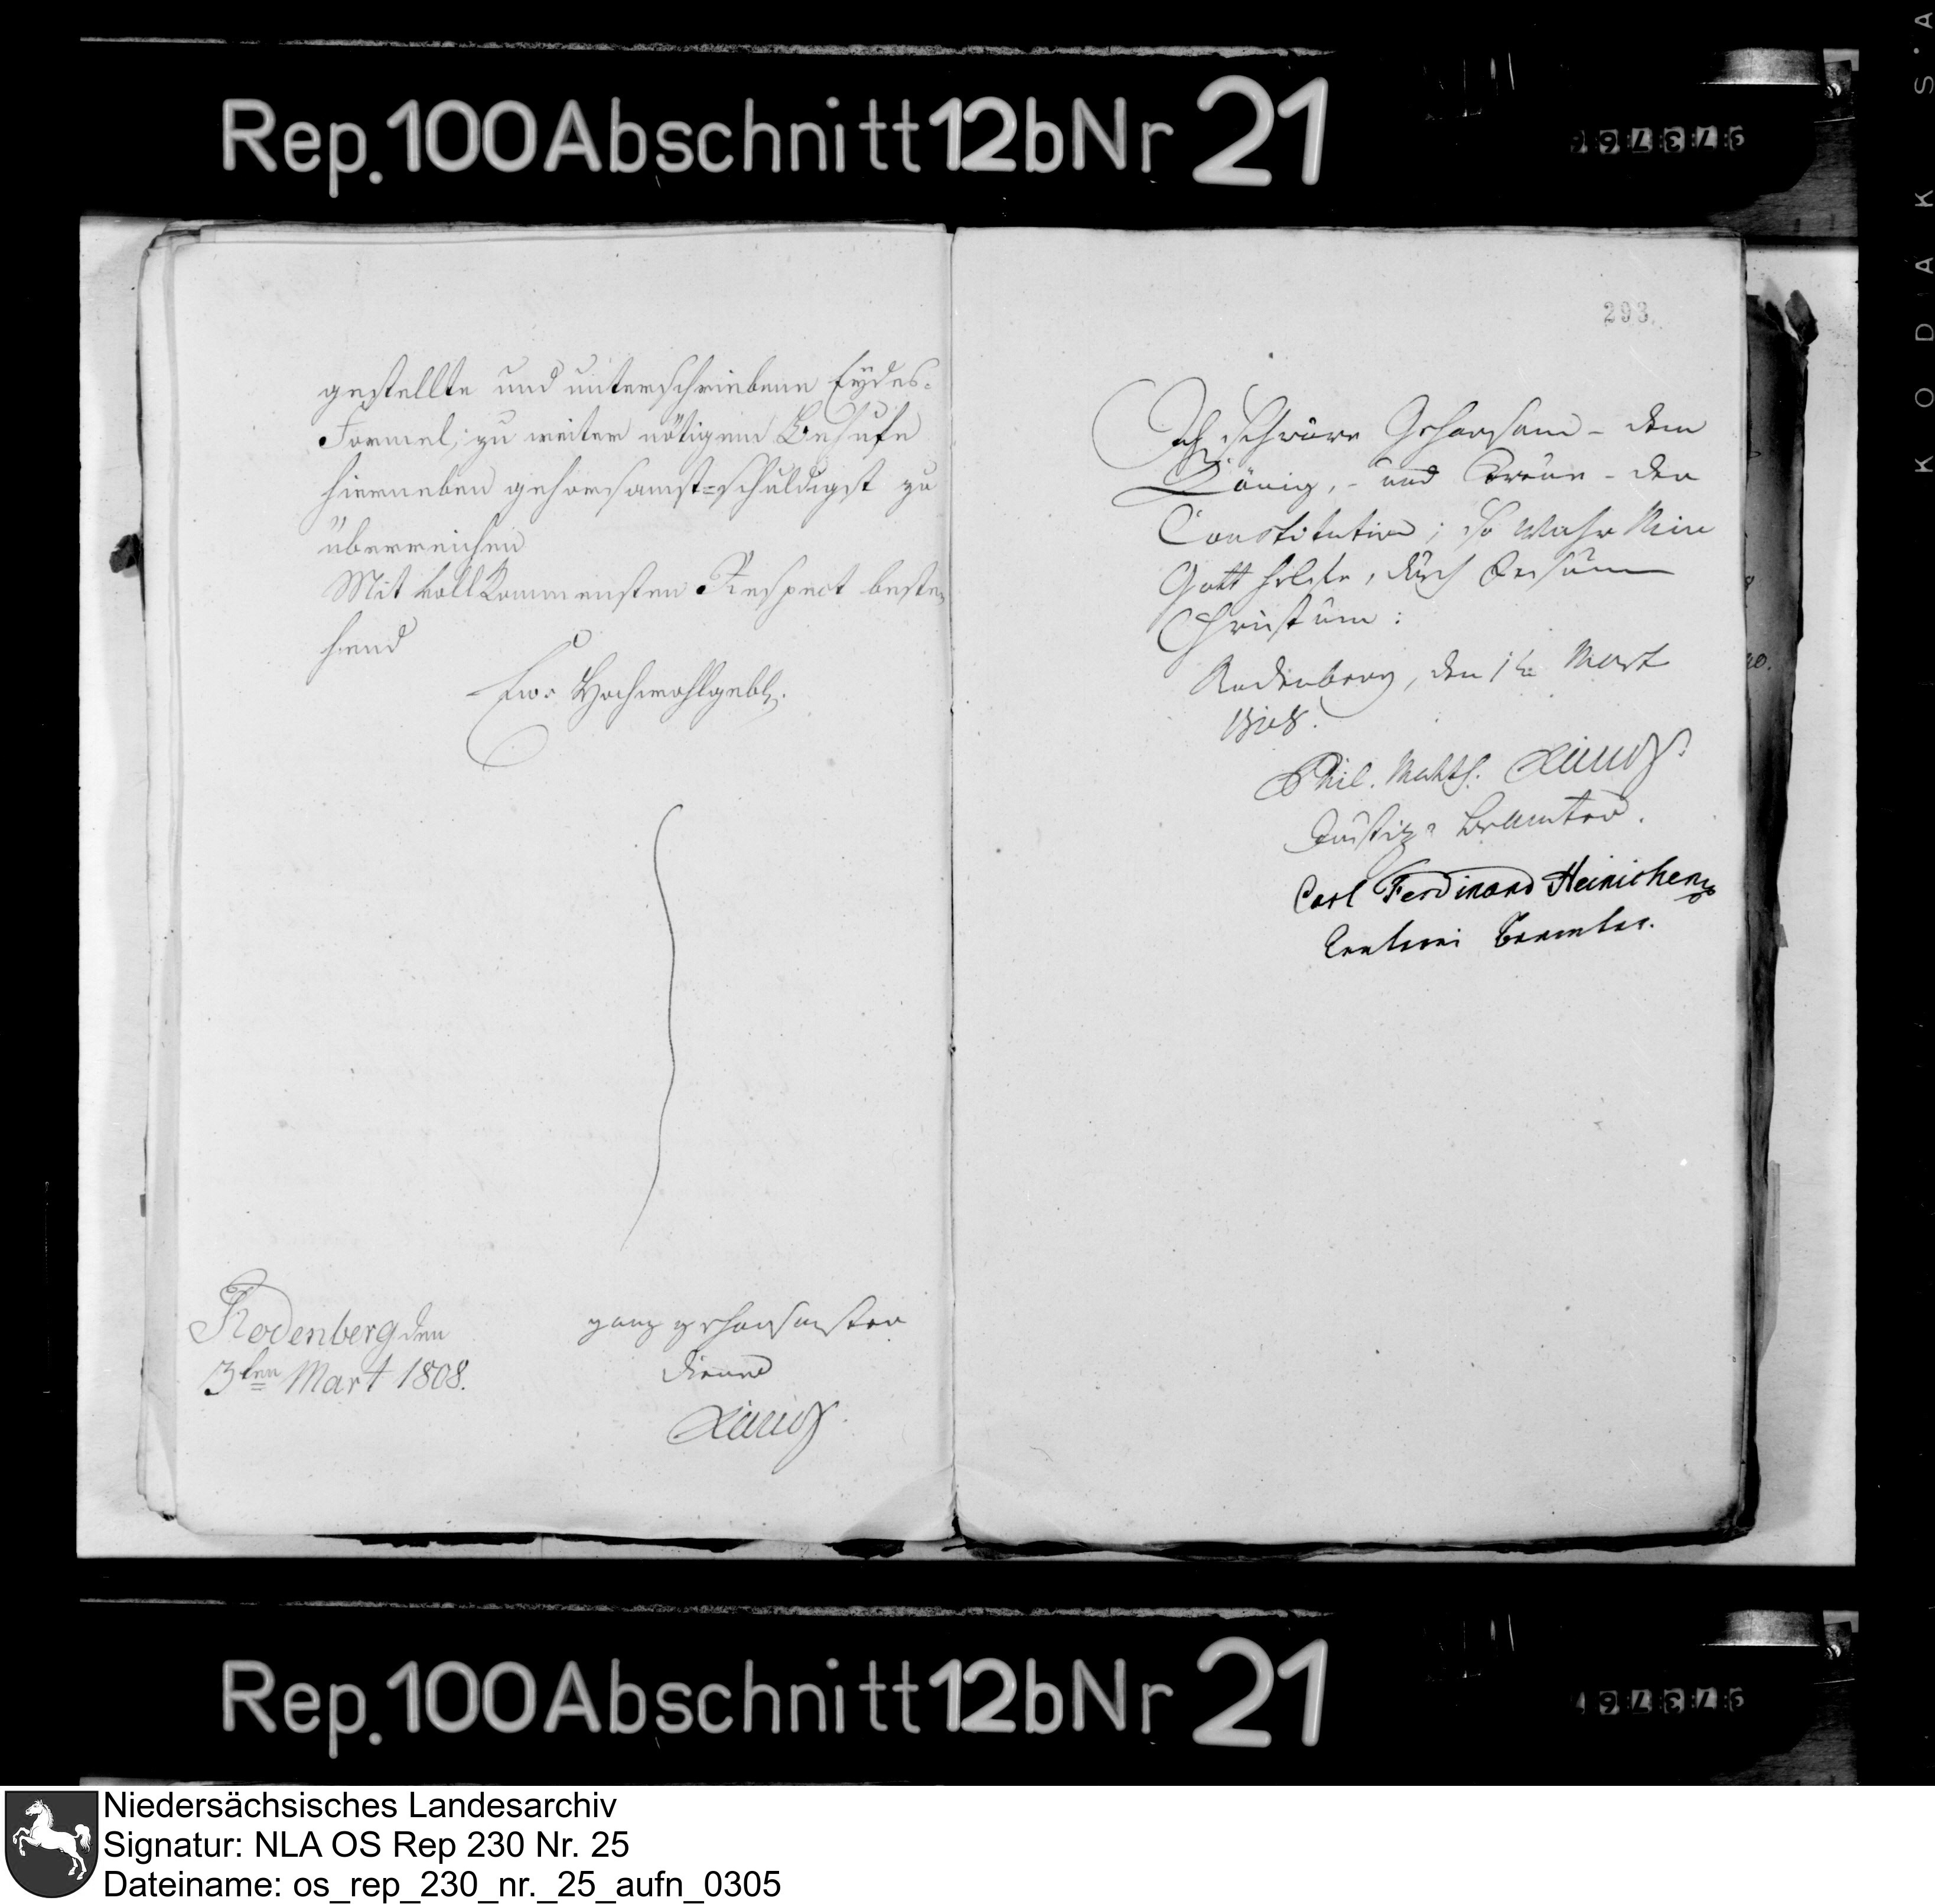 Rep. 100 Abschnitt 12b Nr 21
gestellte und unterschriebene Eydes-
Formel, zu weiter nötigem Behufe
hierneben gehorsamst-schuldigst zu
überreichen
Mit vollkommensten Respect beste-
hend
Ew. Hochwohlgebl.
Rodenberg den
3ten Mart 1808.
ganz gehorsamster
Diener
293.
Ich schwöre Gehorsam - dem
König, - und Treue - der
Constitution; So Wahr Mir
Gott helfe, durch Jesum
Christum:
Rodenberg, den 1ten Mart
1808.
Phil. Matth.
Justiz-Beamter.
Carl Ferdinand Heinichen
Beamter.
Rep. 100 Abschnitt 12b Nr 21
KODAK S.A
Niedersächsisches Landesarchiv
Signatur: NLA OS Rep 230 Nr. 25
Dateiname: os_rep_230_nr._25_aufn_0305